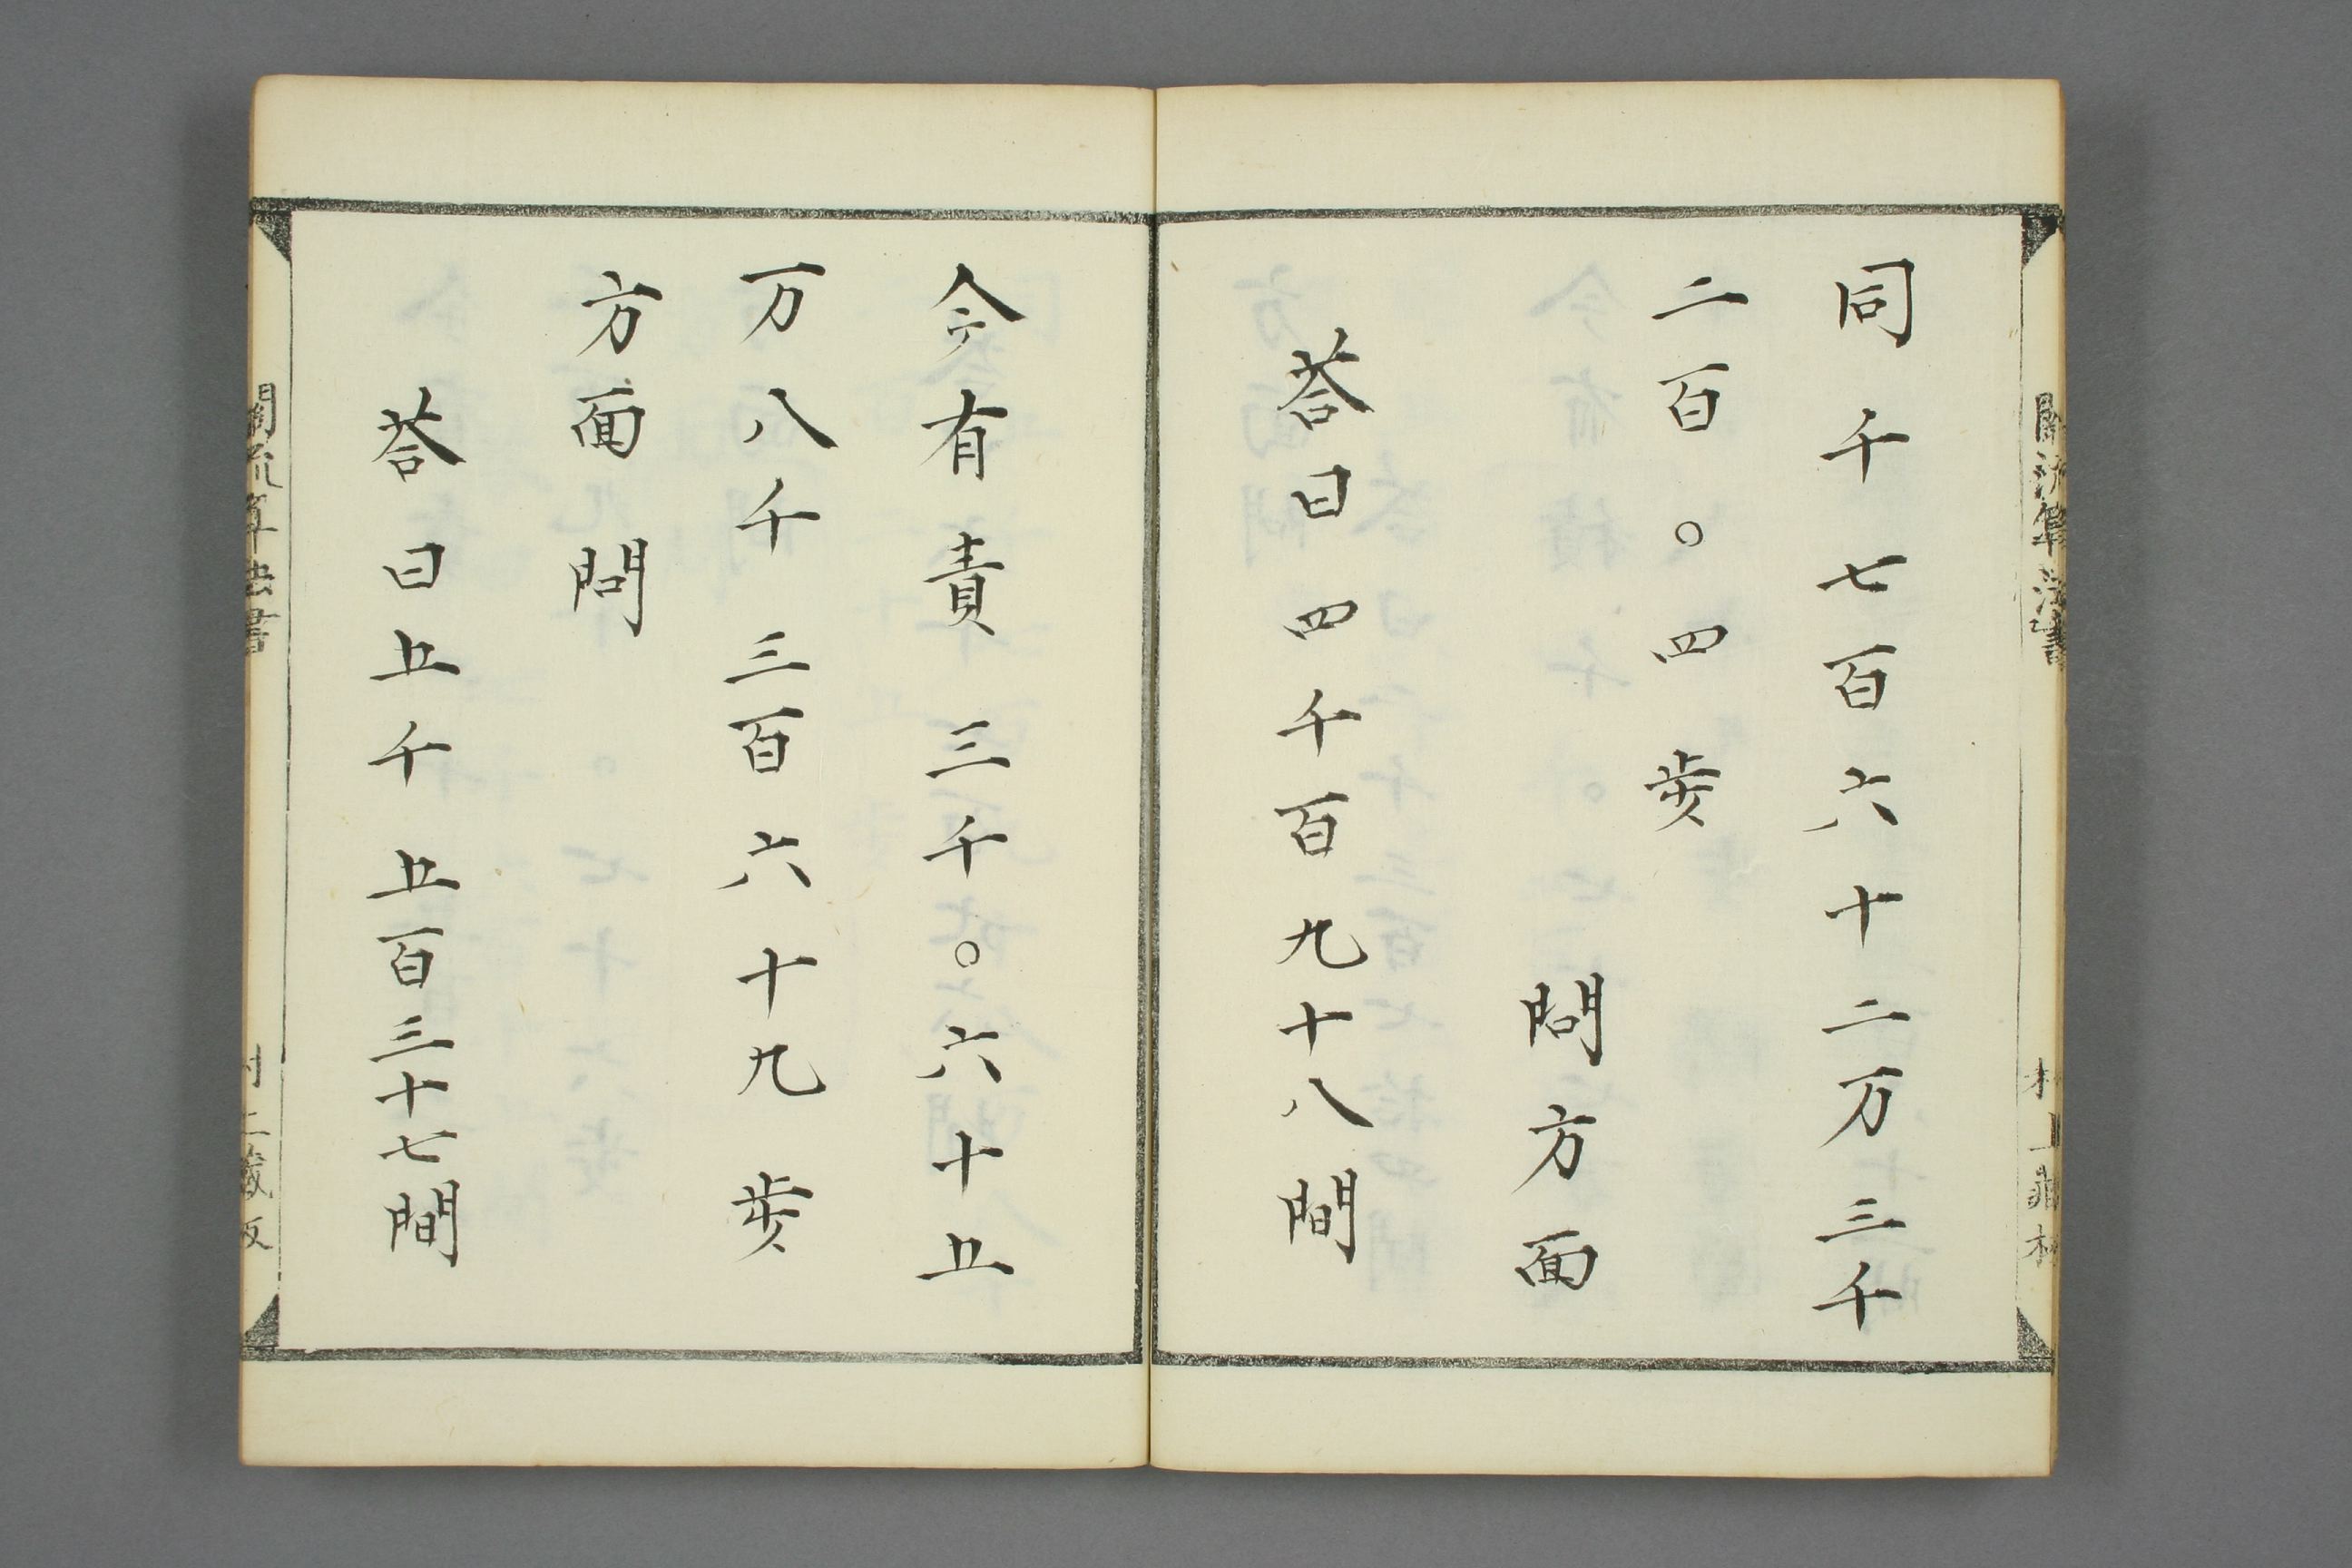 関流算法書
同千七百六十二万三千
二百〇四歩
問方面
荅曰四千百九十八間
今有責三千〇六十五
万八千三百六十九歩
方面問
荅曰五千五百三十七間
関流算法書